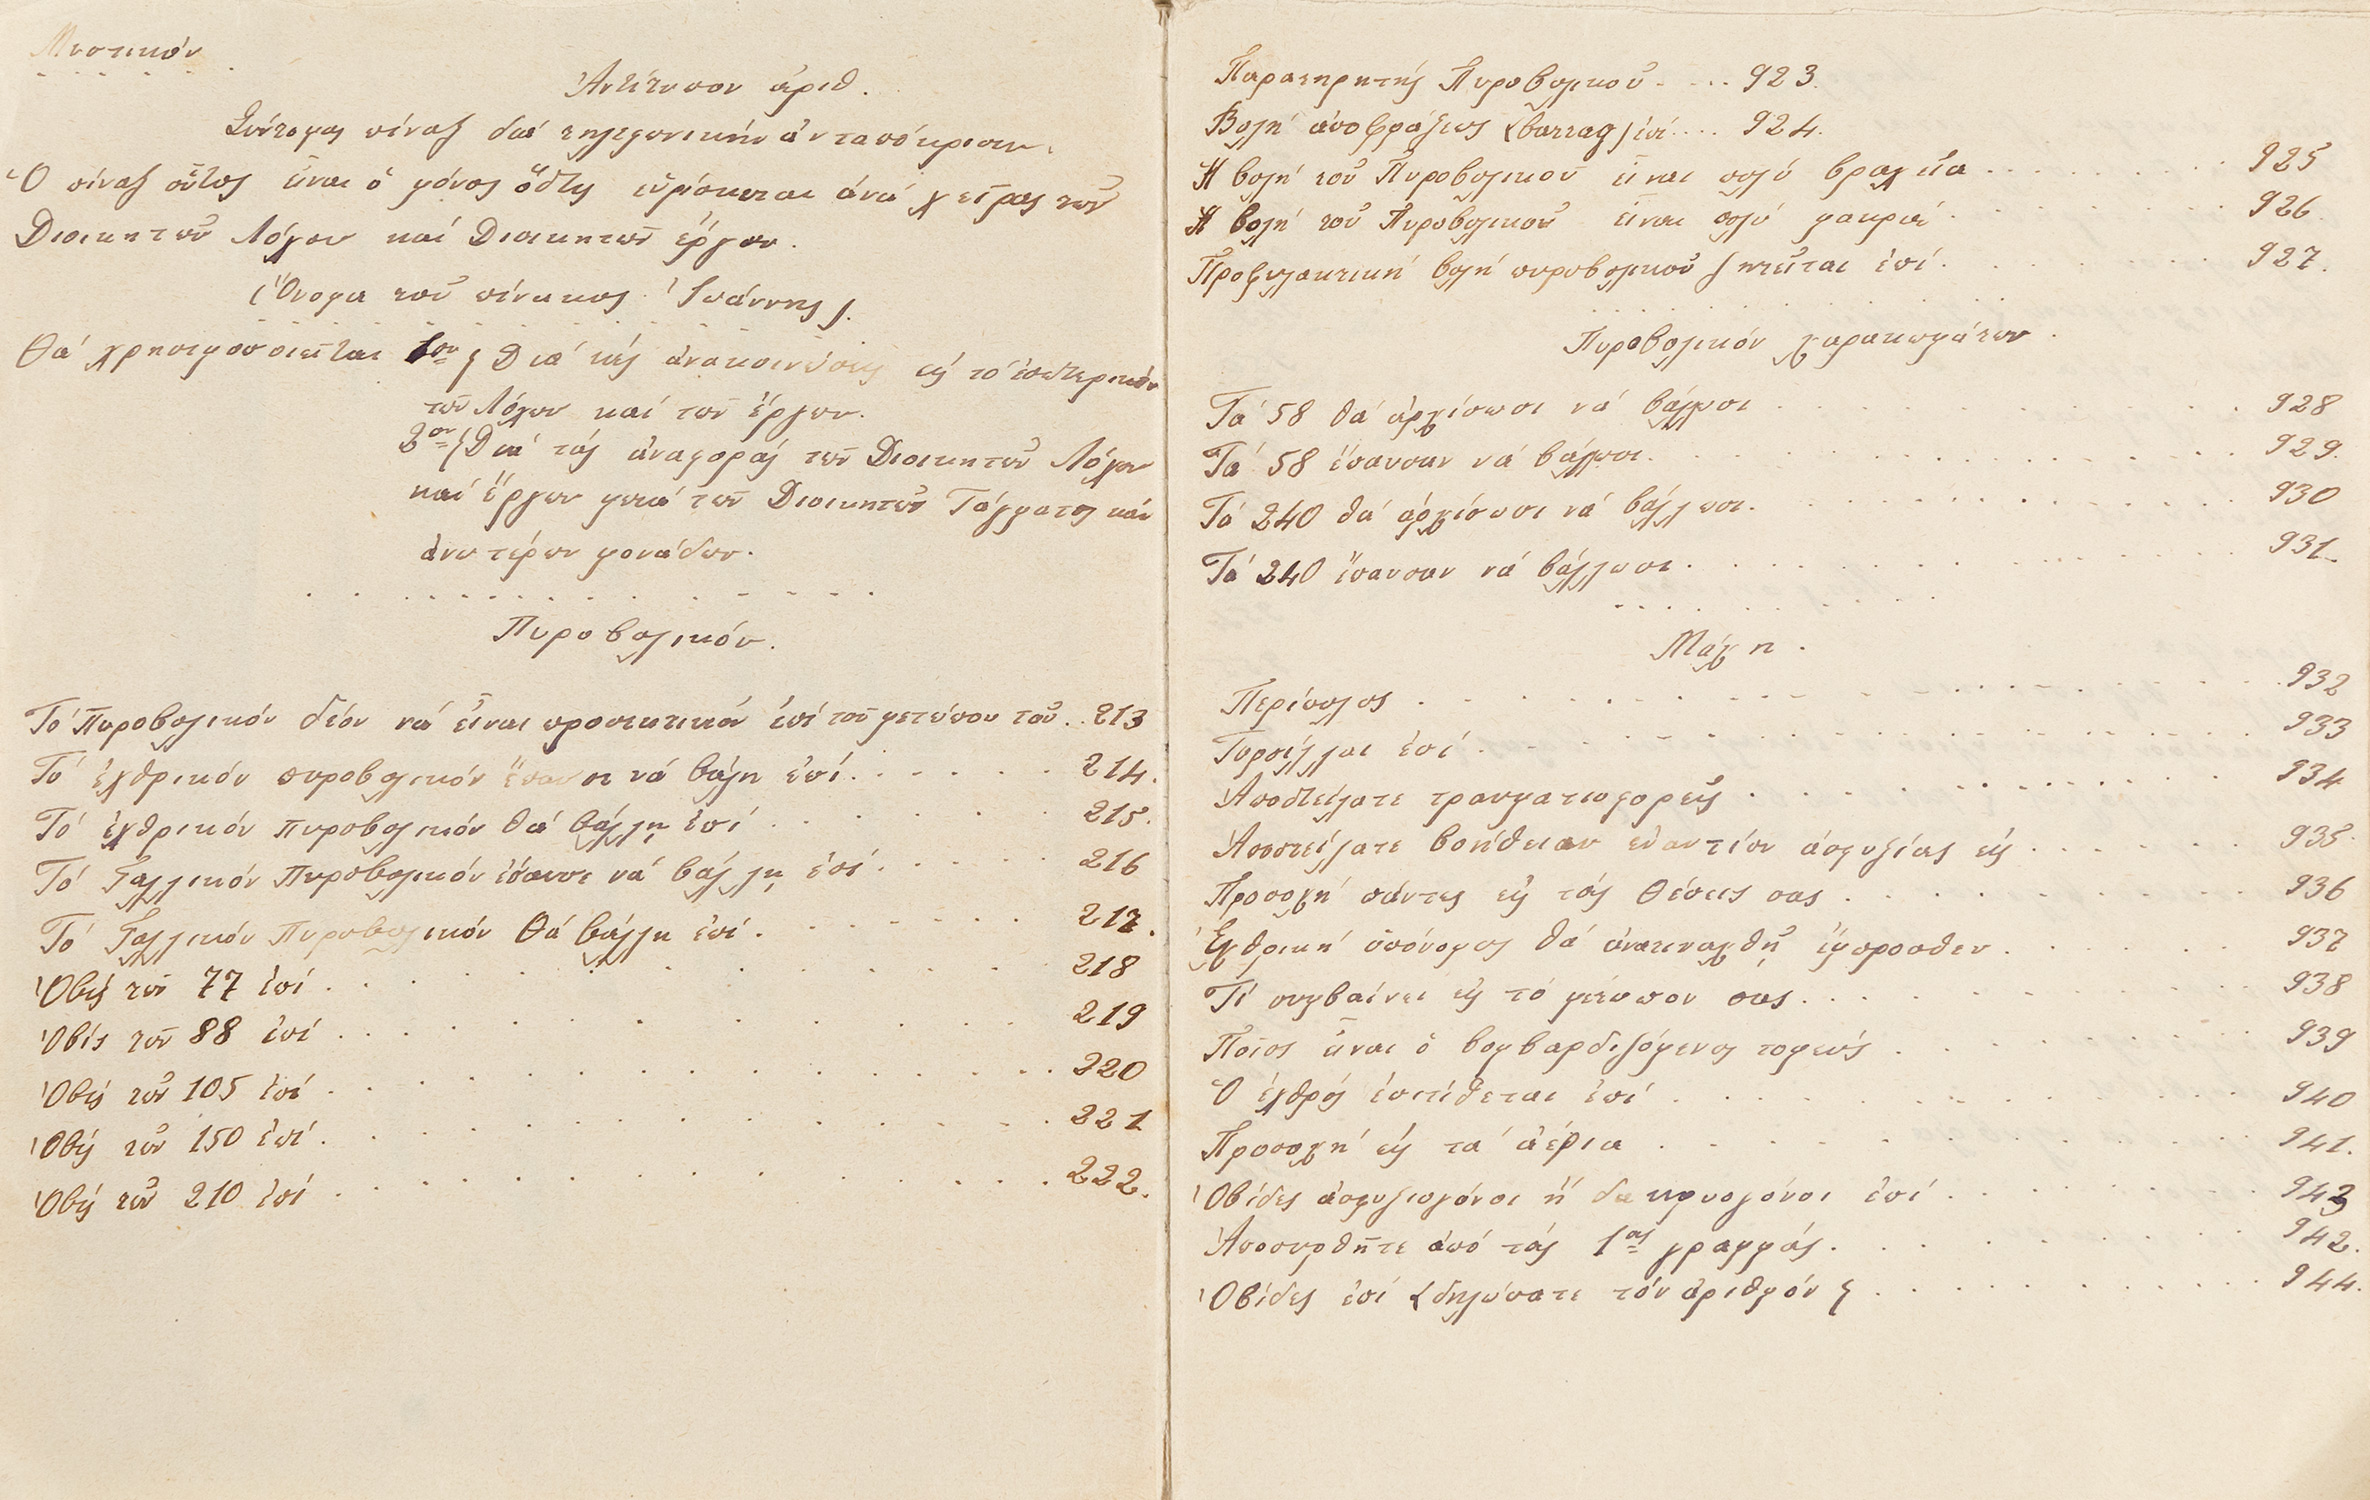 Μυστικόν
Ἀντίτυπον ἀριθ.
Σύντομος πίναξ διά τηλεφωνικήν ἀνταπόκρισιν.
Ὁ πίναξ οὗτος εἶναι ὁ μόνος ὅστις εὑρίσκεται ἀνά χεῖρας τῶν
Διοικητοῦ Λόχου καί Διοικητοῦ ἔργου.
(Ὄνομα τοῦ πίνακος Ἰωάννης).
Θά χρησιμοποιεῖται 1ον) Διά τάς ἀνακοινώσεις εἰς τό ἐσωτερικόν
τοῦ Λόχου καί τοῦ ἔργου.
2ον) Διά τάς ἀναφοράς τοῦ Διοικητοῦ Λόχου
καί ἔργου μετά τοῦ Διοικητοῦ Τάγματος καί
ἀνωτέρων μονάδων.
Πυροβολικόν.
Τό Πυροβολικόν δέον νά εἶναι προσεκτικόν ἐπί τοῦ μετώπου του . . 213
Τό ἐχθρικόν πυροβολικόν ἔπαυσε νά βάλῃ ἐπί . . . . . . 214.
Τό ἐχθρικόν πυροβολικόν θά βάλλῃ ἐπί . . . . . . 215.
Τό Γαλλικόν Πυροβολικόν ἔπαυσε νά βάλλῃ ἐπί . . . . . 216
Τό Γαλλικόν Πυροβολικόν θά βάλλῃ ἐπί . . . . . . 217.
Ὀβίς τῶν 77 ἐπί . . . . . . . . . . 218
Ὀβίς τῶν 88 ἐπί . . . . . . . . . . 219
Ὀβίς τῶν 105 ἐπί . . . . . . . . . . 220
Ὀβίς τῶν 150 ἐπί . . . . . . . . . . 221
Ὀβίς τῶν 210 ἐπί . . . . . . . . . . 222.
Παρατηρητής Πυροβολικοῦ . . . . 923.
Βολή ἀποφράξεως (barrag) ἐπί . . . . 924.
Ἡ βολή τοῦ Πυροβολικοῦ εἶναι πολύ βραχεῖα . . . . . . . 925
Ἡ βολή τοῦ Πυροβολικοῦ εἶναι πολύ μακρά . . . . . . . 926.
Προφυλακτική βολή πυροβολικοῦ ζητεῖται ἐπί . . . . . . . 927.
Πυροβολικόν χαρακωμάτων.
Τά 58 θά ἀρχίσωσι νά βάλωσι . . . . . . . . . . 928
Τά 58 ἔπαυσαν νά βάλωσι . . . . . . . . . . 929.
Τά 240 θά ἀρχίσωσι νά βάλλωσι . . . . . . . . . . 930
Τά 240 ἔπαυσαν νά βάλλωσι . . . . . . . . . . 931.
Μάχη.
Περίπολος . . . . . . . . . . 932
Τορπίλλαι ἐπί . . . . . . . . . . 933
Ἀποστείλατε τραυματιοφορεῖς . . . . . . . . . . 934
Ἀποστείλατε βοήθειαν ἐναντίον ἀσφυξίας εἰς . . . . . . 935.
Προσοχή πάντες εἰς τάς θέσεις σας . . . . . . . . 936
Ἐχθρική ὑπόνομος θά ἀνατιναχθῇ ἔμπροσθεν . . . . . . 937
Τί συμβαίνει εἰς τό μέτωπον σας . . . . . . . . 938
Ποῖος εἶναι ὁ βομβαρδιζόμενος τομεύς . . . . . . . . 939
Ὁ ἐχθρός ἐπιτίθεται ἐπί . . . . . . . . . . 940
Προσοχή εἰς τά ἀέρια . . . . . . . . . . 941.
Ὀβίδες ἀσφυξιογόνοι ἤ δακρυογόνοι ἐπί . . . . . . . 943
Ἀποσυρθῆτε ἀπό τάς 1ας γραμμάς . . . . . . . . 942.
Ὀβίδες ἐπί (δηλώσατε τόν ἀριθμόν) . . . . . . . . 944.